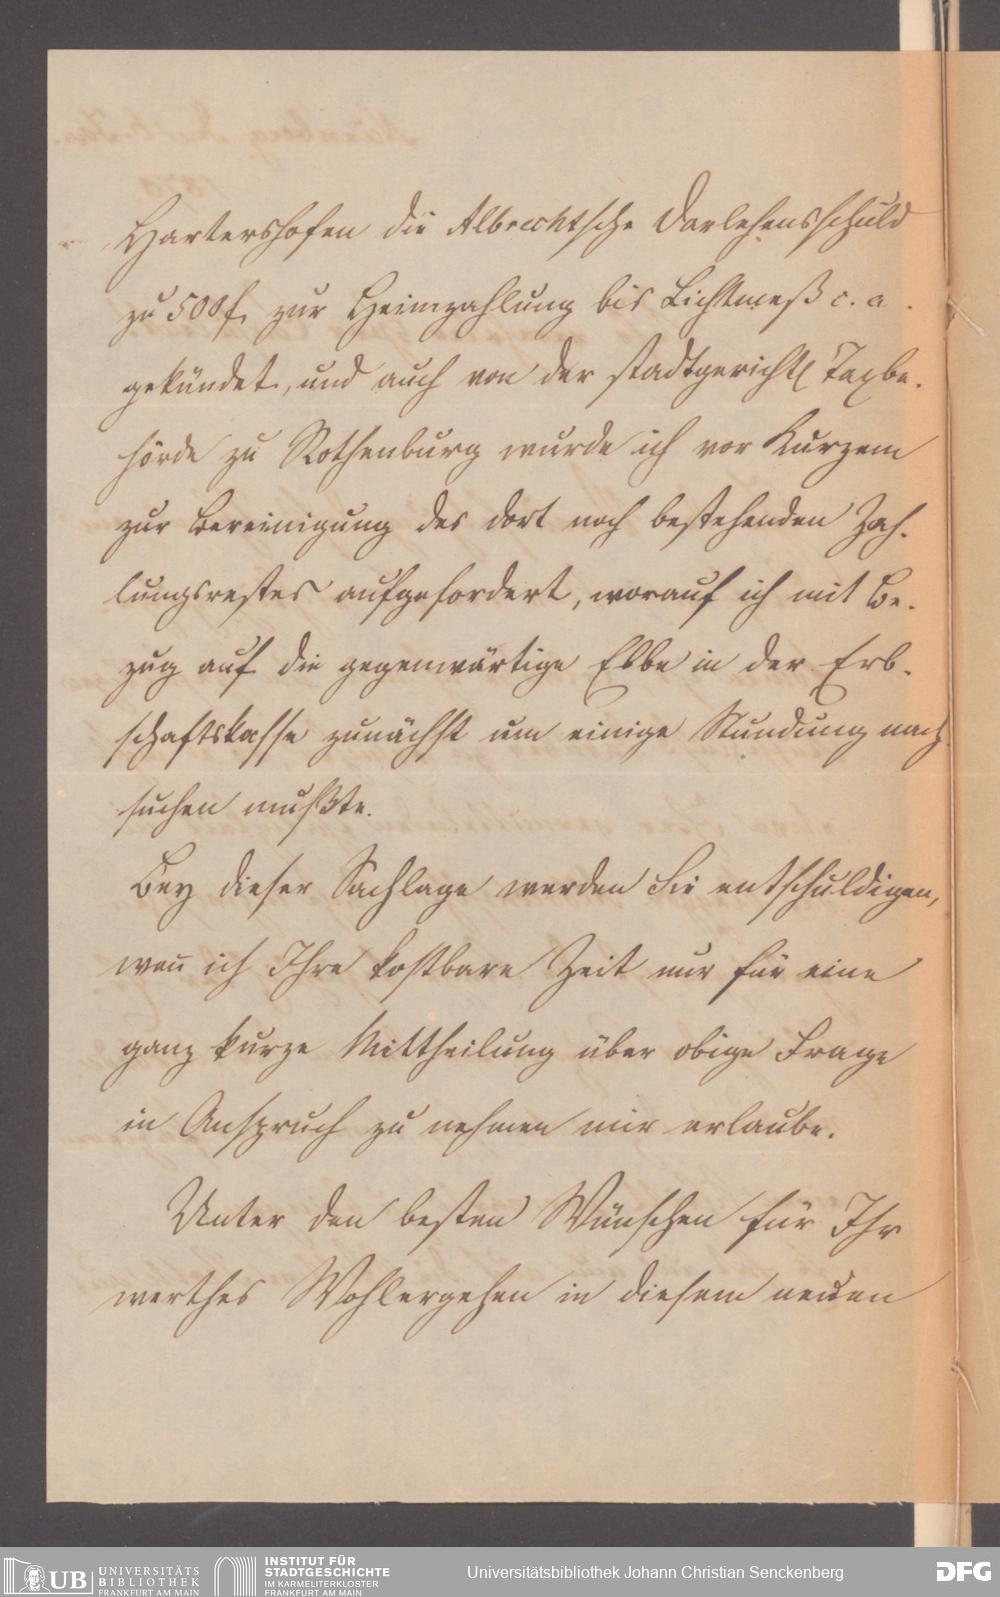 Hartershofen die Albrechtsche Darlehensschuld
zu 500 f. zur Heimzahlung bis Lichtmeß c. a.
gekündet, und auch von der stadtgerichtl Taxbe-
hörde zu Rothenburg wurde ich vor Kurzem
zur Bereinigung des dort noch bestehenden Zah-
lungsrestes aufgefordert, worauf ich mit Be-
zug auf die gegenwärtige Ebbe in der Erb-
schaftskasse zunächst um einige Stundung nach
suchen mußte.
Bey dieser Sachlage werden Sie entschuldigen,
wen̄ ich Ihre kostbare Zeit nur für eine
ganz kurze Mittheilung über obige Frage
in Anspruch zu nehmen mir erlaube.
Unter den besten Wünschen für Ihr
werthes Wohlergehen in diesem neuen
UB UNIVERSITÄTS
BIBLIOTHEK
FRANKFURT AM MAIN
INSTITUT FÜR
STADTGESCHICHTE
IM KARMELITERKLOSTER
FRANKFURT AM MAIN
Universitätsbibliothek Johann Christian Senckenberg
DFG